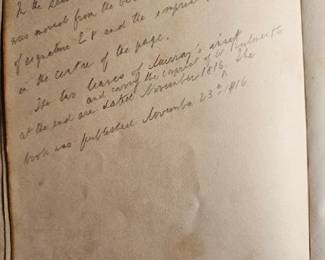 In the
was moved from the
of signature E8 and the imprint
in the centre of the page.
The two leaves of Murray's
and carry the imprint of W.
at the end are dated November 1816. The
book was published November 23rd 1816.